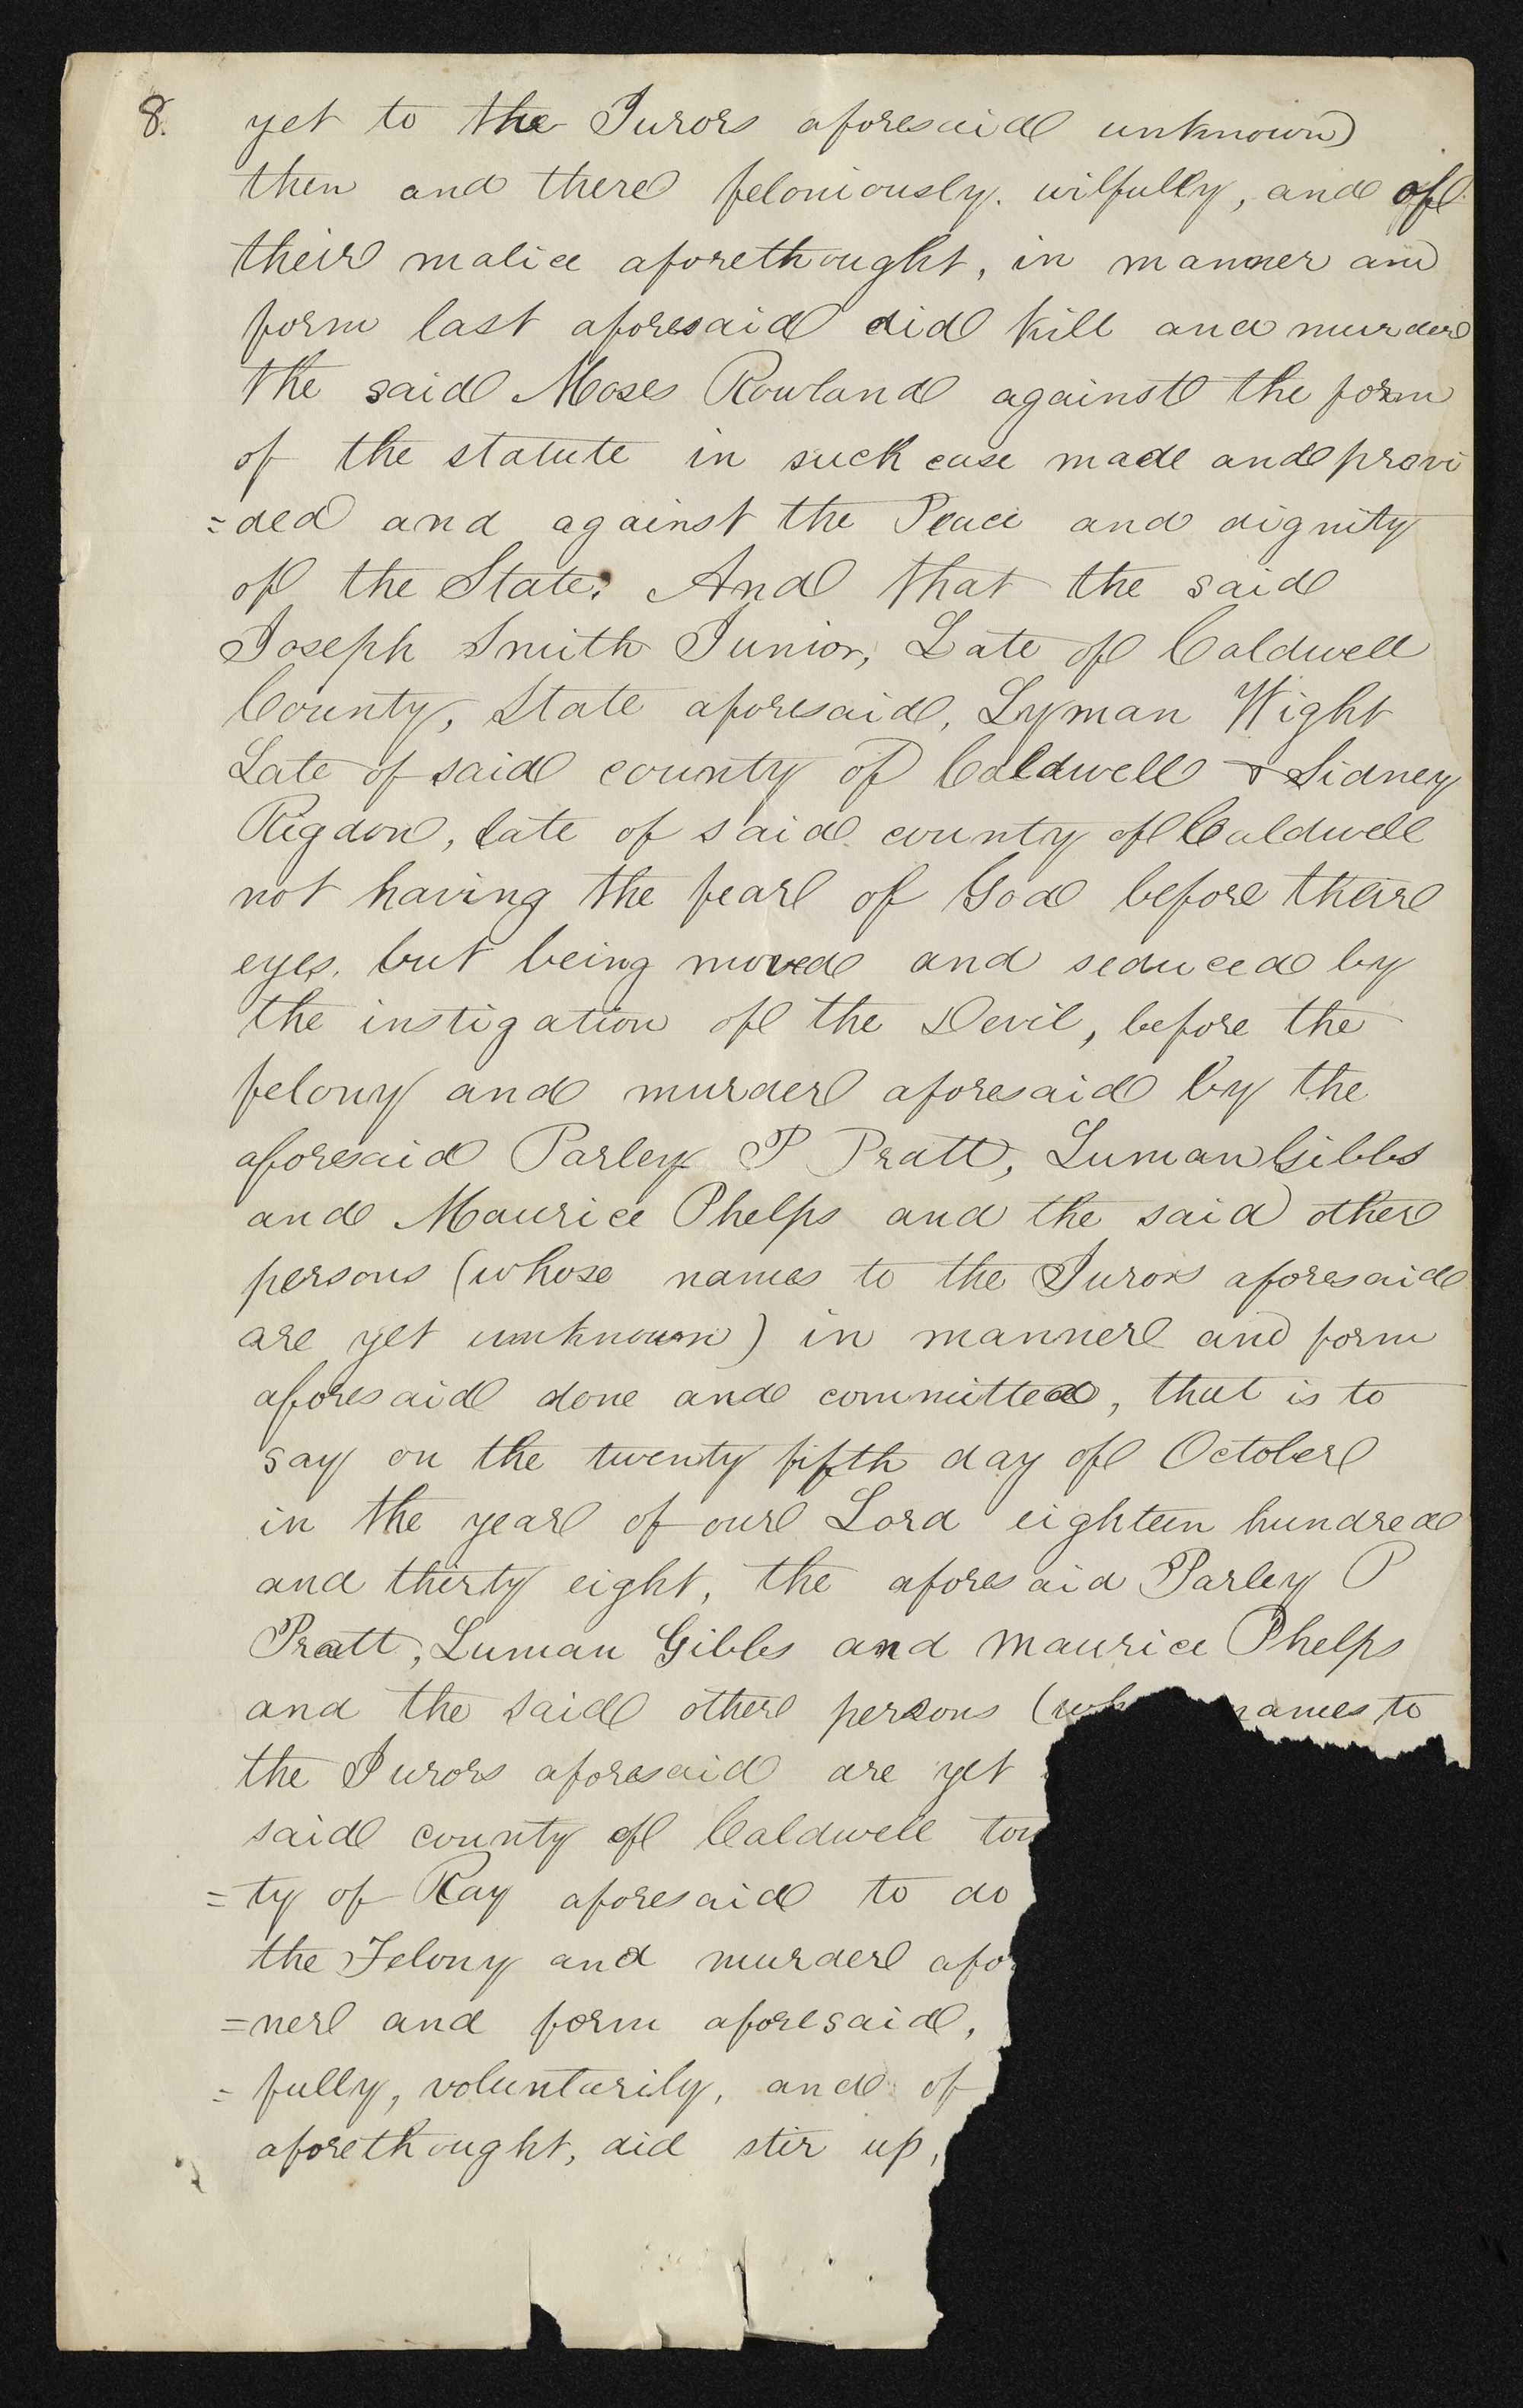 8. yet to the Jurors aforesaid unknown)
then and there feloniously. wilfully, and of
their malice aforethought, in manner and
form last aforesaid did kill and murder
the said Moses Rowland against the form
of the statute in such case made and provi
=ded and against the Peace and dignity
of the State. And that the said
Joseph Smith Junior, Late of Caldwell
County, State aforesaid, Lyman Wight
Late of said county of Caldwell & Sidney
Rigdon, late of said county of Caldwell
not having the fear of God before their
eyes, but being moved and seduced by
the instigation of the Devil, before the
felony and murder aforesaid by the
aforesaid Parley P Pratt, Luman Gibbs
and Maurice Phelps and the said other
persons (whose names to the Jurors aforesaid
are yet unknown) in manner and form
aforesaid done and committed, that is to
say on the twenty fifth day of October
in the year of our Lord eighteen hundred
and thirty eight, the aforesaid Parley P
Pratt, Luman Gibbs and Maurice Phelps
and the said other persons (wh names to
the Jurors aforesaid are yet
said county of Caldwell to
=ty of Ray aforesaid to do
the Felony and murder afo
=ner and form aforesaid,
=fully, voluntarily, and of
aforethought, did stir up,